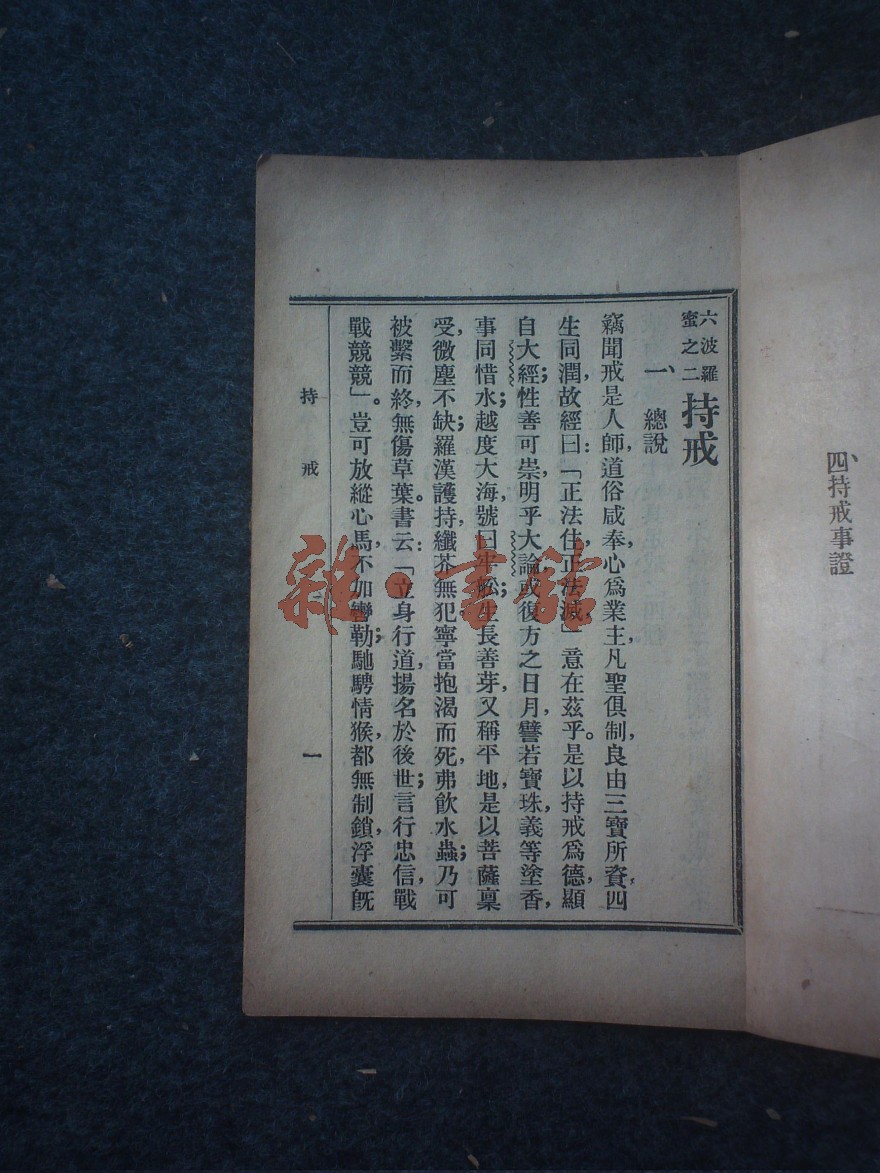 四、持戒事證
六波羅
蜜之二
持戒
一、總說
竊聞戒是人師，道俗咸奉，心爲業主，凡聖俱制，良由三寶所資，四
生同潤，故經曰：「正法住，正法滅」意在茲乎。是以持戒爲德，顯
自大經；性善可崇，明乎大論，或復方之日月，譬若寶珠，義等塗香，
事同惜水；越度大海，號曰牢船；生長善芽，又稱平地，是以菩薩稟
受，微塵不缺；羅漢護持，纖芥無犯。寧當抱渴而死，弗飲水蟲；乃可
被繫而終，無傷草葉。書云：「立身行道，揚名於後世；言行忠信，戰
戰競競」。豈可放縱心馬，不加轡勒；馳騁情猴，都無制鎖，浮囊旣
持戒
一
雜·書館